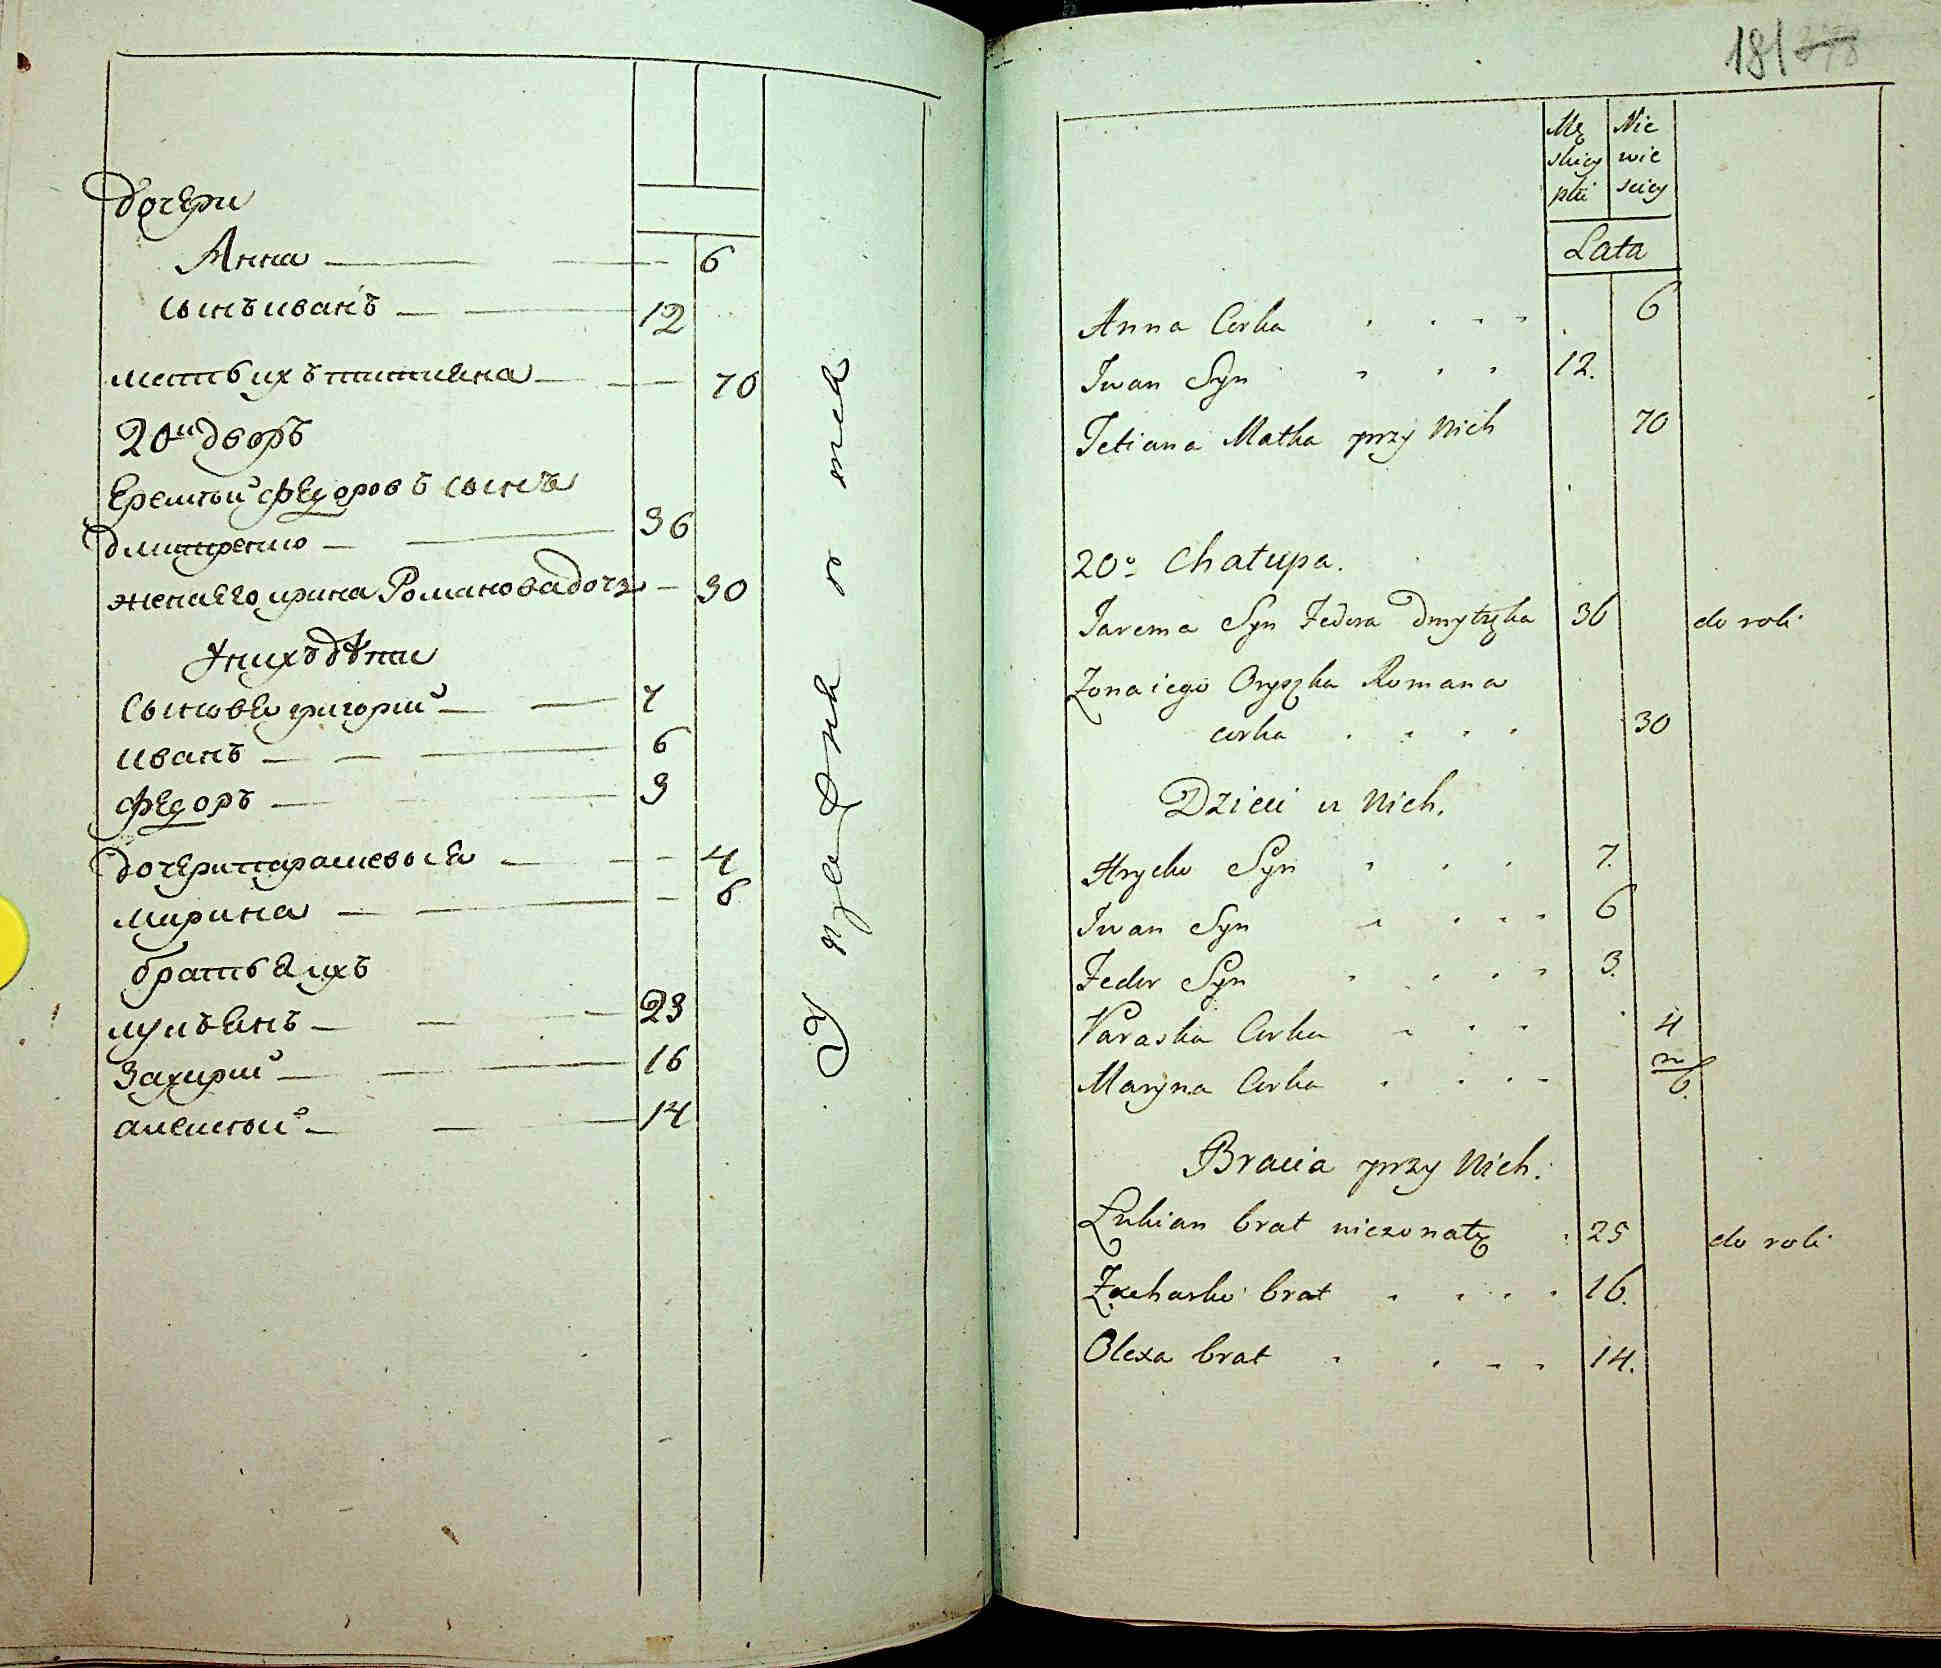 дочери
Анна 6
сынъ иванъ 12
мать ихъ татиана 70
20й дворъ
Еремѣй федоровъ сынъ
дмитренко 36
жена его ирина Романова дочь 30
у нихъ дѣти
сыновья григорий 7
иванъ 6
федоръ 3
дочери парасковья 4
марина 6
братья ихъ
лукъянъ 23
Захарий 16
алексѣй 14
181 378
Mę Nie
skiey wie
płci sciey
Lata
Anna Corka 6
Iwan Syn 12.
Tetiana Matka przy Nich 70
20o Chałupa.
Jarema Syn Fedora Dmytryka 36 do roli
Zona iego Oryszka Romana
corka 30
Dzieci u Nich.
Hrycko Syn 7.
Iwan Syn 6
Fedor Syn 3.
Paraska Corka 4
Maryna Corka 6.
Bracia przy Nich.
Łukian brat niezonaty 25 do roli
Zacharko brat 16.
Olexa brat 14.